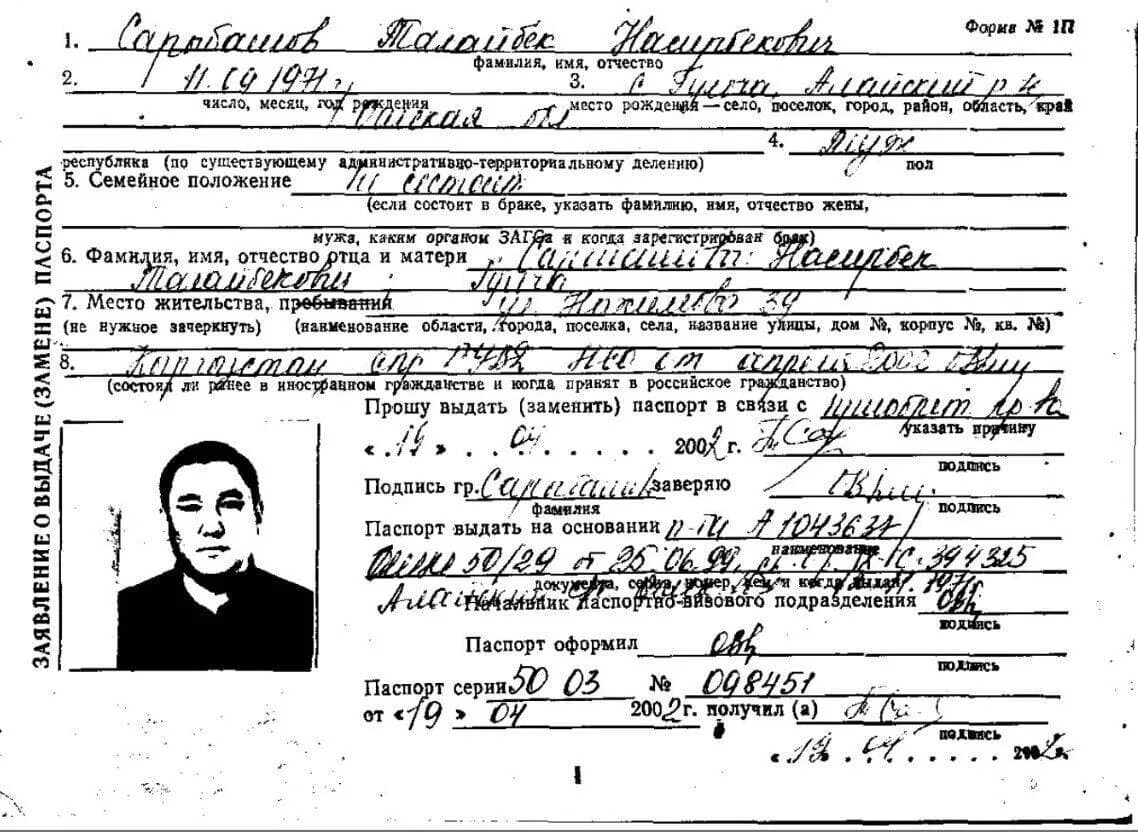 Форма № 1П
1. Сарыбашов Талайбек Насирбекович
фамилия, имя, отчество
2. 11.09 1971 г. 3. с Гульча, Алайский р-н
число, месяц, год рождения место рождения — село, поселок, город, район, область, край
Ошская обл
4. муж
республика (по существующему административно-территориальному делению) пол
5. Семейное положение состоит
(если состоит в браке, указать фамилию, имя, отчество жены,
мужа, каким органом ЗАГСа и когда зарегистрирован брак)
6. Фамилия, имя, отчество отца и матери Насирбек
Талайбекович
7. Место жительства, пребывания ул. Нахимова 39
(не нужное зачеркнуть) (наименование области, города, поселка, села, название улицы, дом №, корпус №, кв. №)
8. апреля 2002
(состоял ли ранее в иностранном гражданстве и когда принят в российское гражданство)
Прошу выдать (заменить) паспорт в связи с приобрет гр-ва
указать причину
« 19 » 04 2002 г.
подпись
Подпись гр. заверяю
фамилия подпись
Паспорт выдать на основании А1043637
50/29 от 25.06.99, 394325
наименование
документа, серия, номер, кем и когда выдан
Алайский 1971
Начальник паспортно-визового подразделения
подпись
Паспорт оформил
подпись
Паспорт серии 50 03 № 098451
от « 19 » 04 2002 г. получил (а)
подпись
« 19 » 04 2002 г.
ЗАЯВЛЕНИЕ О ВЫДАЧЕ (ЗАМЕНЕ) ПАСПОРТА